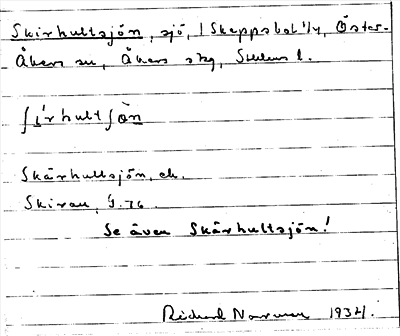 Skirhultsjön, sjö, 1 Skeppsbol 1/4, Öster-
Åkers sn, Åkers skg, Sthlms l.
ʃi̱'rhultʃö̀n
Skärhultsjön, ek.
Skiran, G. 76.
Se även Skärhultsjön!
Richard Norman 1934.